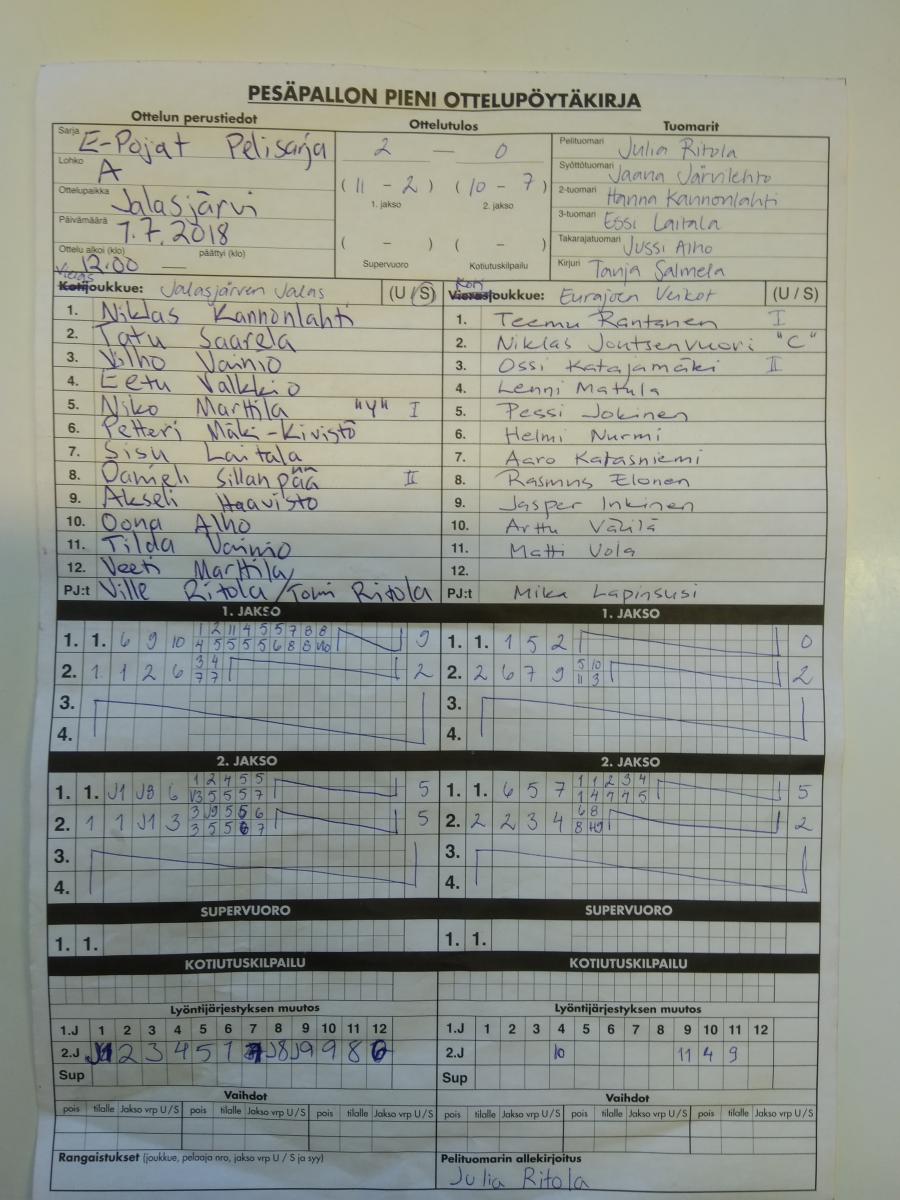 PESÄPALLON PIENI OTTELUPÖYTÄKIRJA
Ottelun perustiedot Ottelutulos Tuomarit
Sarja E-Pojat Pelisarja
Lohko A
Ottelupaikka Jalasjärvi
Päivämäärä 1.7.2018
Ottelu alkoi (klo) päättyi (klo)
12:00 —
2 — 0
( 11 - 2 ) ( 10 - 7 )
1. jakso 2. jakso
( - ) ( - )
Supervuoro Kotiutuskilpailu
Pelituomari Julia Ritola
Syöttötuomari Jaana Järvilehto
2-tuomari Hanna Kannonlahti
3-tuomari Essi Laitala
Takarajatuomari Jussi Alho
Kirjuri Tanja Salmela
Vieras
Kotijoukkue: Jalasjärven Jalas (U / S)
1. Niklas Kannonlahti
2. Tatu Saarela
3. Vilho Vainio
4. Eetu Valkkio
5. Niko Marttila "V" I
6. Petteri Mäki-Kivistö
7. Sisu Laitala
8. Daniel Sillanpää II
9. Akseli Haavisto
10. Oona Alho
11. Tilda Vainio
12. Veeti Marttila
PJ:t Ville Ritola / Tomi Ritola
Koti
Vierasjoukkue: Eurajoen Veikot (U / S)
1. Teemu Rantanen I
2. Niklas Joutsenvuori "C"
3. Ossi Katajamäki II
4. Lenni Matula
5. Pessi Jokinen
6. Helmi Nurmi
7. Aaro Katasniemi
8. Rasmus Elonen
9. Jasper Inkinen
10. Arttu Välilä
11. Matti Vola
12.
PJ:t Mika Lapinsusi
1. JAKSO 1. JAKSO
1 2 11 4 5 5 7 8 8
1. 1. 6 9 10 9
1. 1. 1 5 2 0
3 4
2. 1 1 2 6 2
7 7
5 10
2. 2 6 7 9 2
11 3
3. 3.
4. 4.
2. JAKSO 2. JAKSO
1 2 4 5 5
1. 1. J1 J8 6 5
V3 5 5 5 7
1 1 2 3 4
1. 1. 6 5 7 5
1 4 7 7 5
3 J9 5 5 6
2. 1 1 J1 3 5
3 5 5 6 7
6 8
2. 2 2 3 4 2
3. 3.
4. 4.
SUPERVUORO SUPERVUORO
1. 1. 1. 1.
KOTIUTUSKILPAILU KOTIUTUSKILPAILU
Lyöntijärjestyksen muutos Lyöntijärjestyksen muutos
1.J 1 2 3 4 5 6 7 8 9 10 11 12 1.J 1 2 3 4 5 6 7 8 9 10 11 12
2.J J1 2 3 4 5 1 J8 J9 9 8 6 2.J 10 11 4 9
Sup Sup
Vaihdot Vaihdot
pois tilalle Jakso vrp U / S pois tilalle Jakso vrp U / S pois tilalle Jakso vrp U / S pois tilalle Jakso vrp U / S pois tilalle Jakso vrp U / S pois tilalle Jakso vrp U / S
Rangaistukset (joukkue, pelaaja nro, jakso vrp U / S ja syy) Pelituomarin allekirjoitus
Julia Ritola